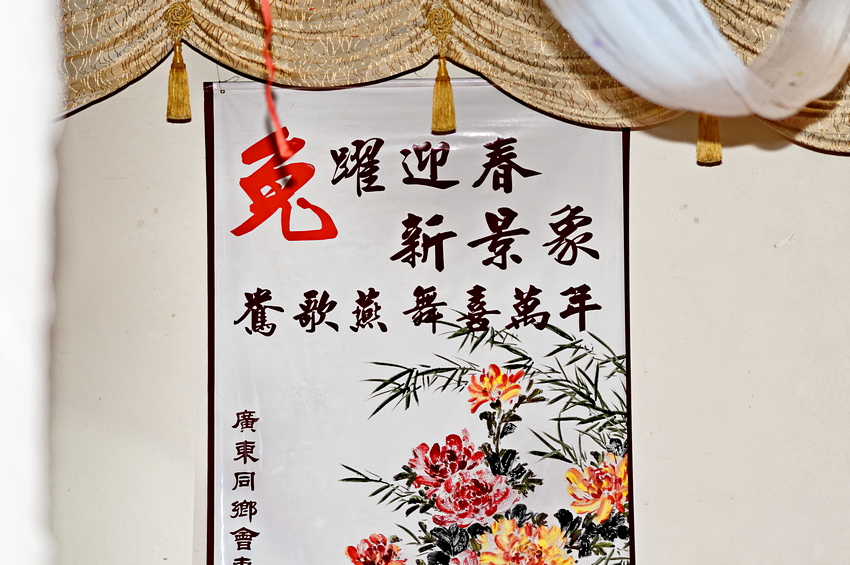 兔躍迎春
新景象
鶯歌燕舞喜萬年
廣東同鄉會